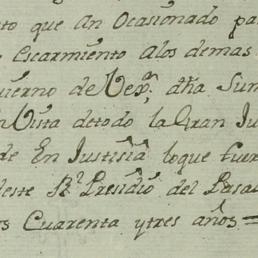 to que an Ocasionado pa
escarmiento alos demas
uierno de Vexª. dha Sum
n Vista detodo la Gran Ju
de En Justisia loque fuer
deste Rl. Presidio del Pasa
s Cuarenta ytres años=